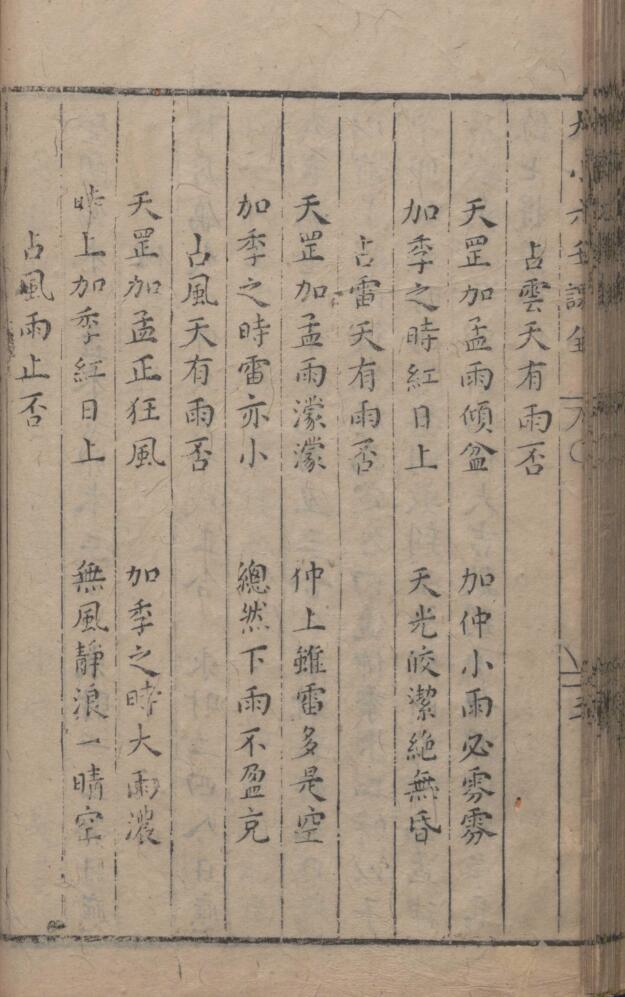 大小六壬課全
占雲天有雨否
天罡加孟雨傾盆　加仲小雨必雰雰
加季之時紅日上　天光皎潔絶無昏
占雷天有雨否
天罡加孟雨濛濛　仲上雖雷多是空
加季之時雷亦小　總然下雨不盈克
占風天有雨否
天罡加孟正狂風　加季之時大雨濃
時上加季紅日上　無風靜浪一晴空
占風雨止否